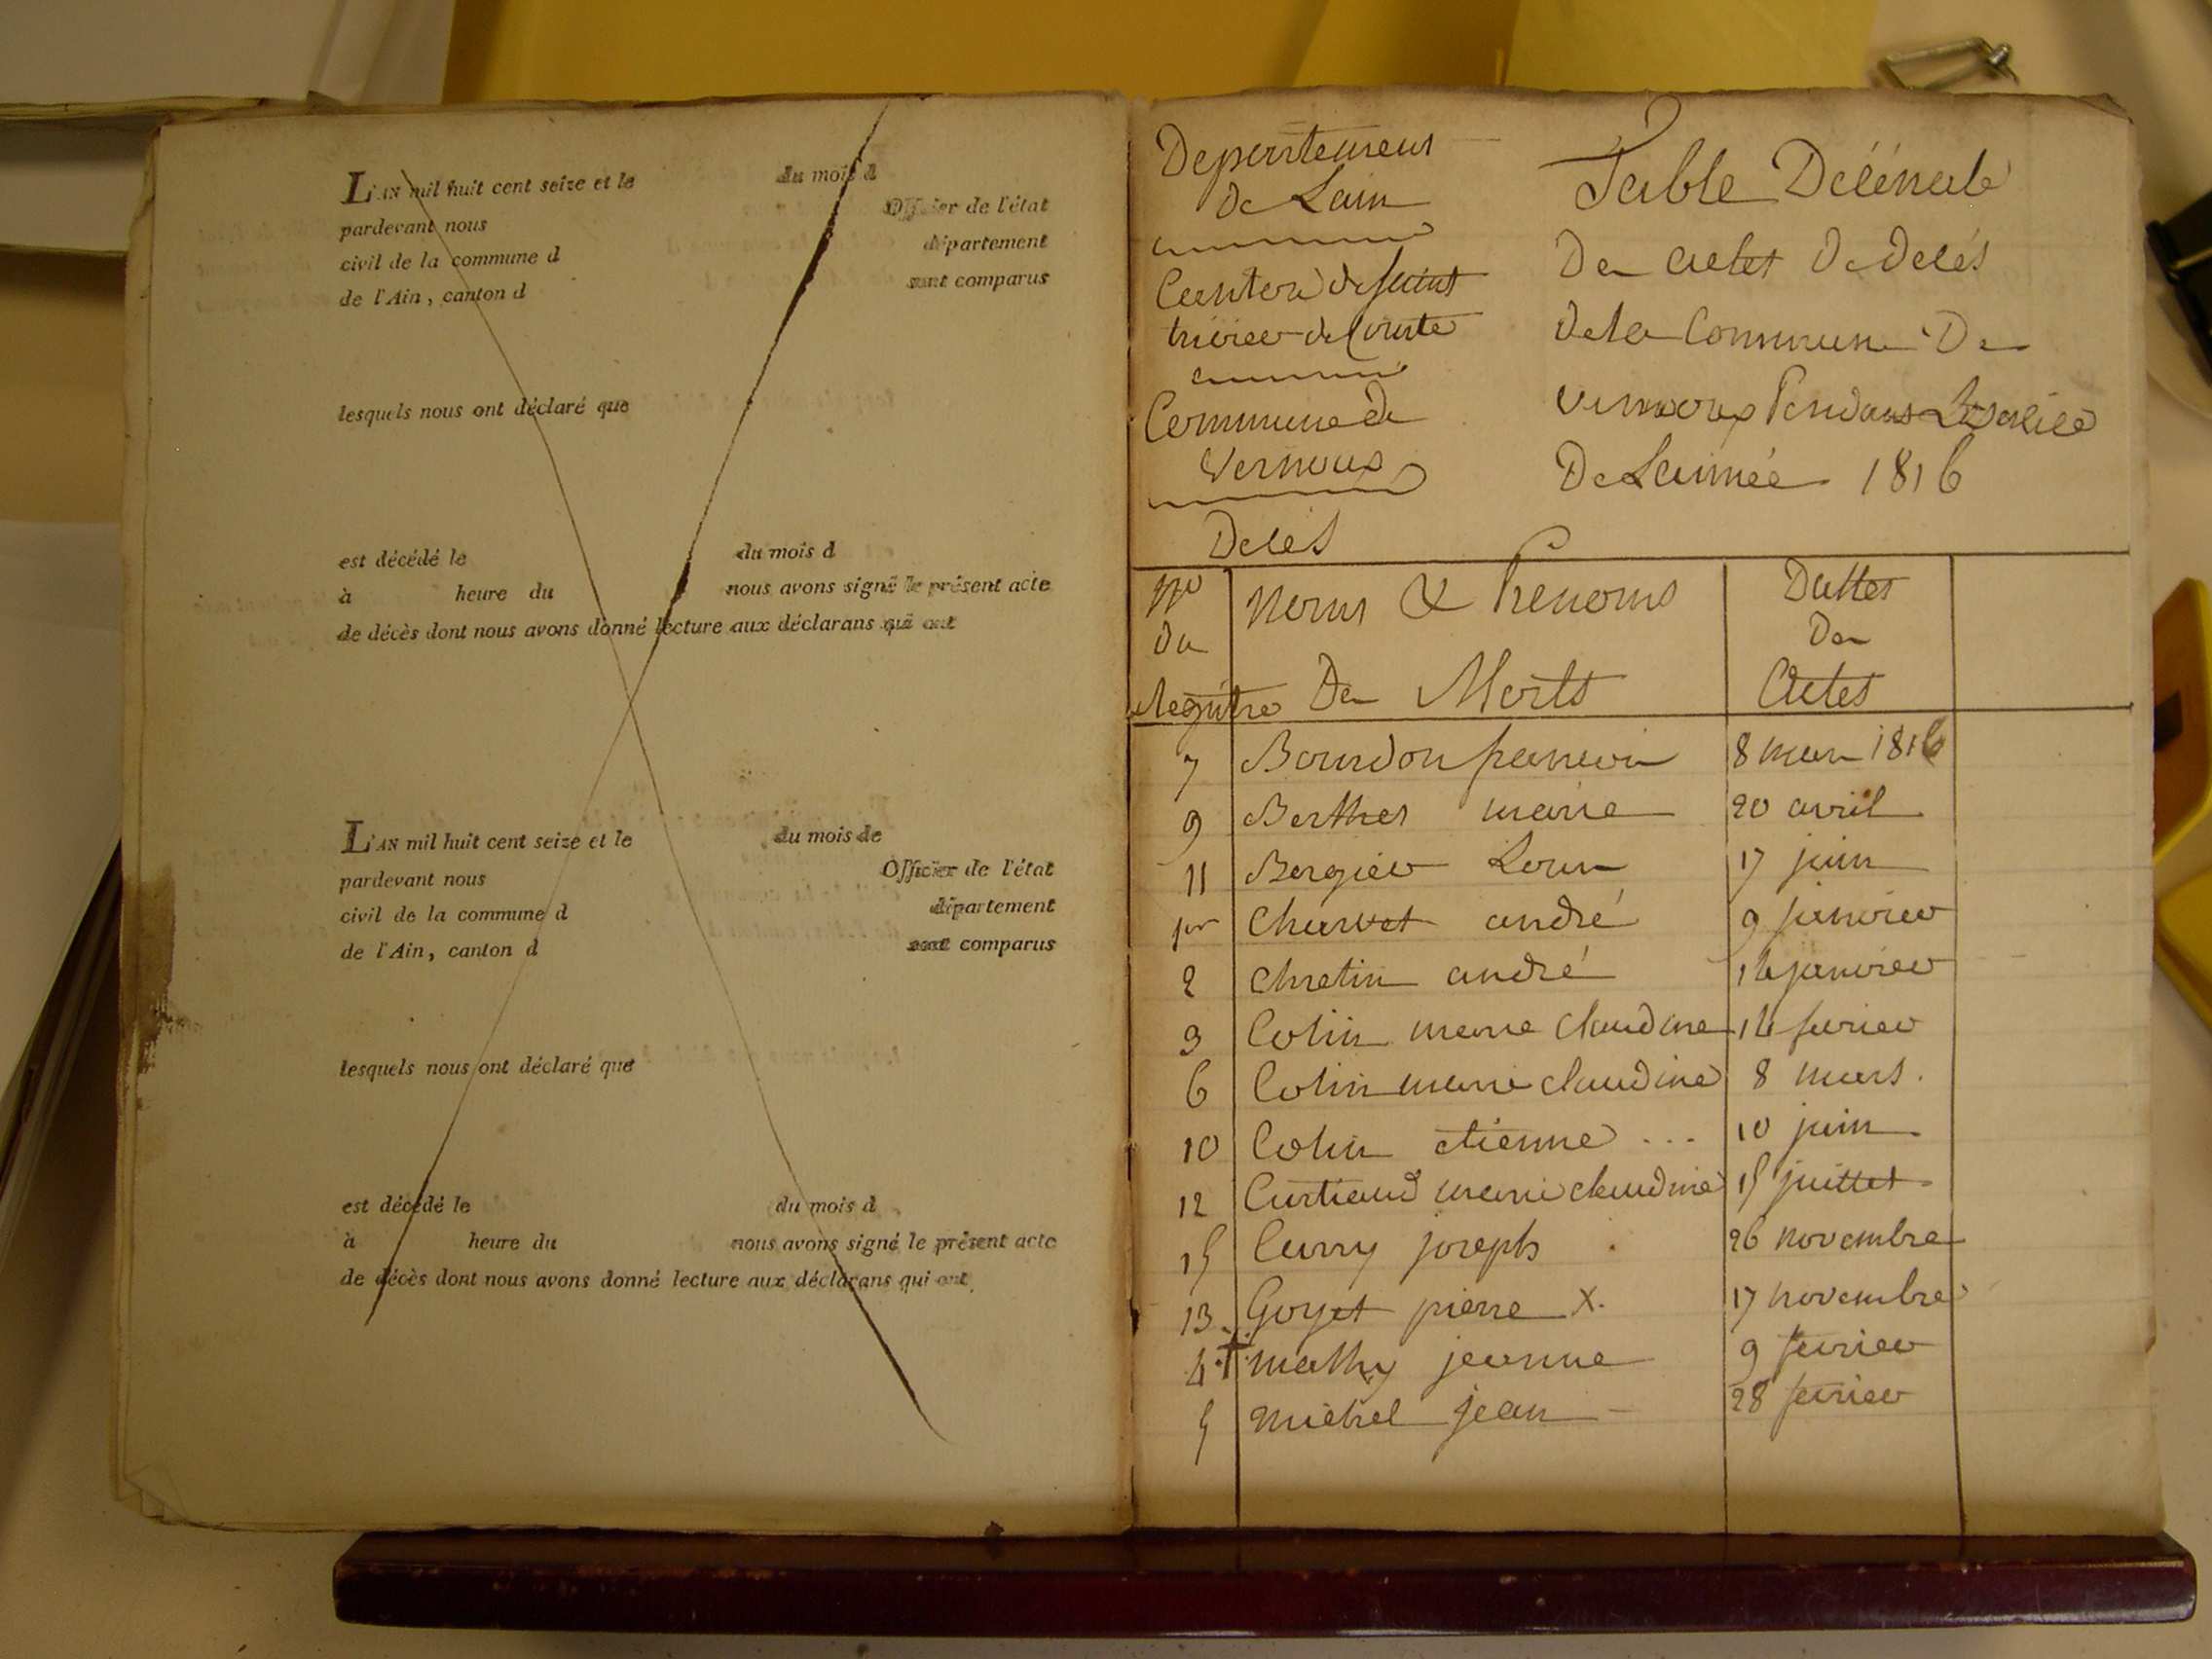 L'AN mil huit cent seize et le du mois d
pardevant nous Officier de l'état
civil de la commune d département
de l'Ain, canton d sont comparus
lesquels nous ont déclaré que
est décédé le du mois d
à heure du nous avons signé le présent acte
de décès dont nous avons donné lecture aux déclarans qui ont
L'AN mil huit cent seize et le du mois de
pardevant nous Officier de l'état
civil de la commune d département
de l'Ain, canton d sont comparus
lesquels nous ont déclaré que
est décédé le du mois d
à heure du nous avons signé le présent acte
de décès dont nous avons donné lecture aux déclarans qui ont
Departement
De Lain
Canton de saint
trivier de Courte
Commune de
Vernoux
Table Décénale
Des actes De décés
De la Commune De
vernoux Pendant
De Lannée 1816
Décés
No
du
Registre
Noms & Prenoms
Des Morts
Dattes
Des
Actes
7 Bourdon francois 8 mars 1816
9 Berthet marie 20 avril
11 Bergier Louis 17 juin
1er Charvet andré 9 janvier
2 Chretin andré 14 janvier
3 Colin marie claudine 14 fevrier
6 Colin marie claudine 8 mars.
10 Colin etienne ... 10 juin
12 Curtiaud marie claudine 15 juillet
15 Curny joseph . 26 novembre
13 Goyet pierre X. 17 novembre
4 + mathy jeanne 9 fevrier
5 michel jean 28 fevrier